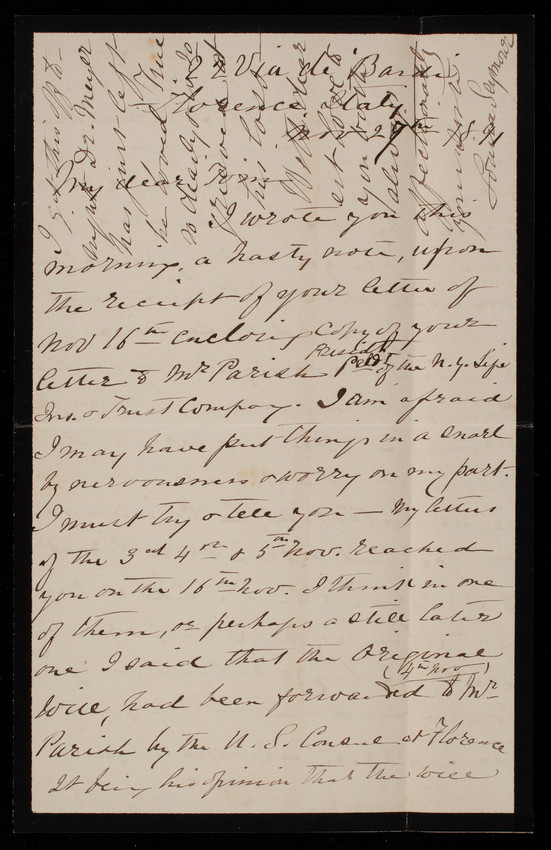 22 Via de' Bardi
Florence Italy
Nov 27th 1891
My dear Tom
I wrote you this
morning, a hasty note, upon
the receipt of your letter of
Nov 16th enclosing copy of your
letter to Mr Parish President of the N.Y. Life
Ins. & Trust Company. I am afraid
I may have put things in a snarl
by nervousness & worry on my part.
I must try & tell you — My letters
of the 3rd 4th & 5th Nov. reached
you on the 16th Nov. I think in one
of them, or perhaps a still later
one I said that the Original
(4th Nov)
Will, had been forwarded to Mr
Parish by the U. S. Consul at Florence
It being his opinion that the will
I got this
Dr. Meyer
has just left
he loved
his loss
With
you both
always
affectionately
your
Louisa Seymour